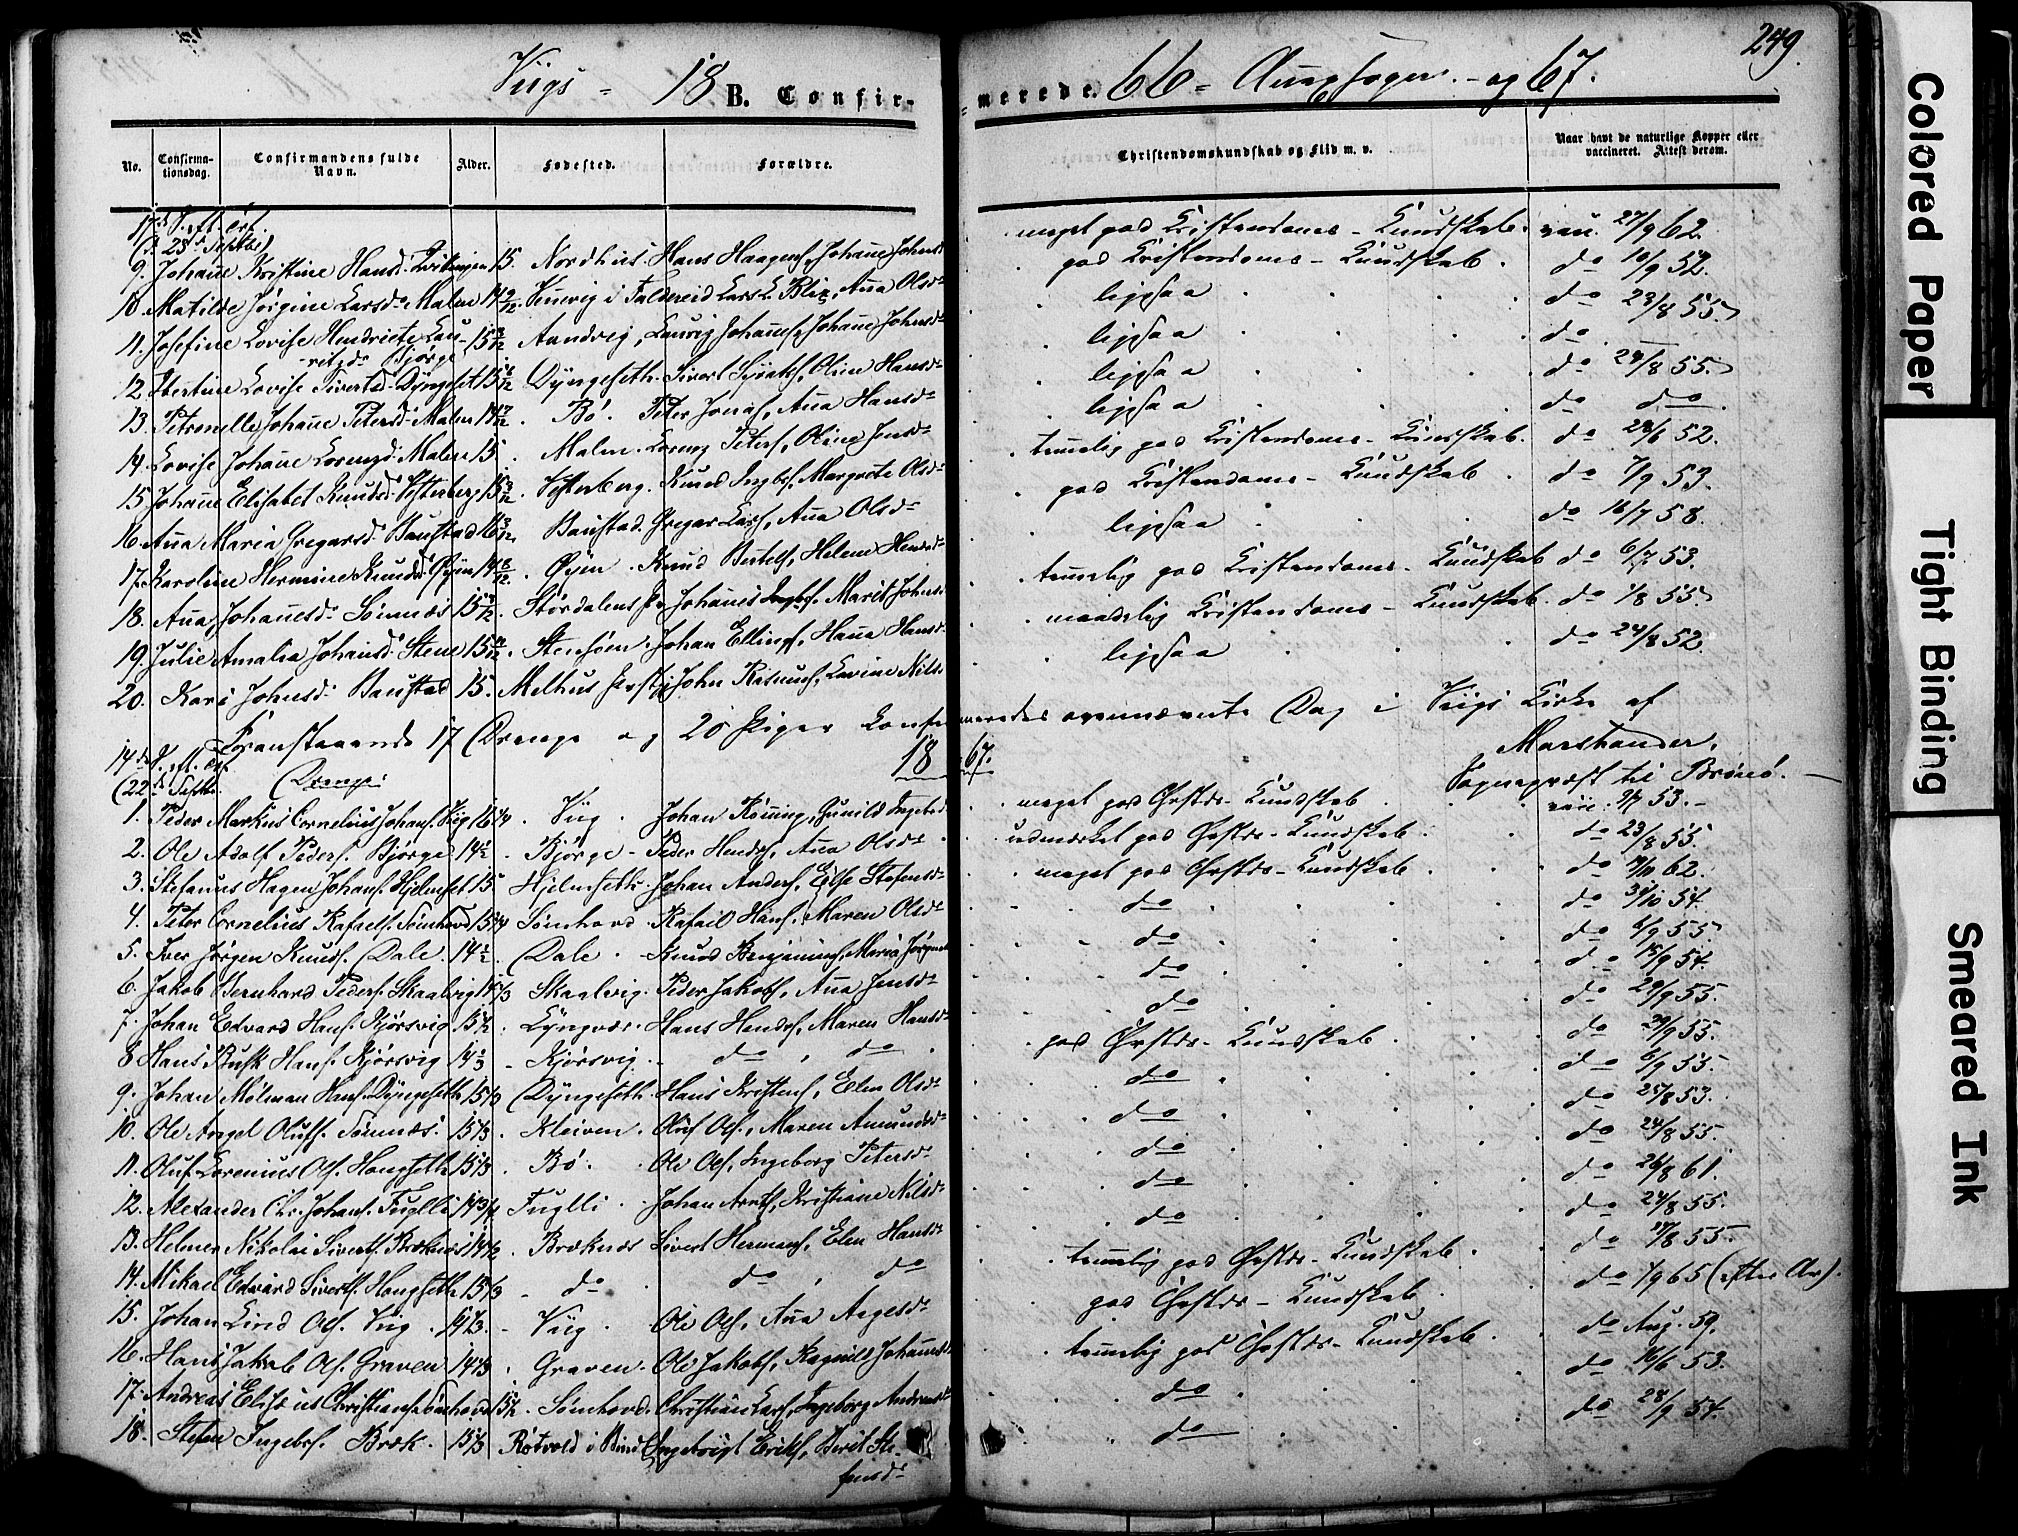 249.
Viigs - 18 B. Confir-merede. 66 - Annexsogn. - og 67.
No. Confirma-tionsdag. Confirmandens fulde Navn. Alder. Fødested. Forældre. Christendomskundskab og Flid m. v. Naar havt de naturlige Kopper eller vaccineret. Attest derom.
17de S. eft. Trf.
(d. 23de Septbr)
9. Johane Kristine Hansd. 15. Nordhus. Hans Haagens, Johane Johnsd. meget god Kristendoms-Kundskab. vac. 27/9 62.
10. Matilde Jørgine Larsd. Malm 14 9/12 i Foldereid Lars L. Blix, Ana Olsdr god Kristendoms-Kundskab. do 10/9 52.
11. Josefine Lovise Hendriete Lau-ritzdr Bjørge 15 3/12 Aandvig, Lauritz Johans, Johane Johnsdr ligesaa do 23/8 55.
ligesaa do
12. Lovise Sivertsd. Dyngeset 15 Dyngeseth. Sivert, Oline Hansdr ligesaa do 24/8 55.
13. Petronelle Johane Petersd. Malm 14 Bö. Peter Jonas, Ana Hansdr ligesaa do do
14. Lovise Johane Lorenzd. Malm 15. Malm. Lorenz Peters, Oline Jensdr temelig god Kristendoms-Kundskab. do 28/6 52.
15. Johane Elisabet Knudsd. Vesterberg 15 3/12. Vesterberg. Knud Ingbrs, Margrete Olsdr god Kristendoms-Kundskab do 7/9 53.
16. Ana Maria Gregarsd. Baustad 16 3/12 Baustad. Gregar Lars, Ana Olsdr ligesaa do 16/7 58.
17. Karoline Hermine Knudsd. Øyen 14 8/12. Øyen. Knud Bertels, Helene temelig god Kristendoms-Kundskab do 6/7 53.
18. Ana Johanesd. Sömnæs 15. Størdalens Pr Johanes, Marit Johnsd. maadelig Kristendoms-Kundskab. do 1/8 55.
19. Julie Amalia Johansd. Stene 15. Stensøen. Johan Ellings, Hana Hansd. ligesaa do 24/8 52.
20. Kari Johnsd. Baustad 15. Melhus John Rasmus, Lavine Nils
Foranstaaende 17 Drenge og 20 Piger konfirmeredes ovennævnte Dag i Viigs Kirke af
Marstrander,
Sognepræst til Brønø.
1867.
14de S. eft. Trf.
(22de Septbr.
Drenge:
1. Peder Markus Cornelius Johans. Viig 16 1/4. Viig. Johan Rönning, Gunild Ingebr meget god Chrstds-Kundskab vac. 9/7 53.
2. Ole Adolf Peders. Bjørge 14 1/2. Bjørge. Peder Hendrs, Ana Olsdr udmærket god Chrstds-Kundskab. do 23/8 55.
3. Stefanus Hagen Johans. Hjelmset 15 Hjelmseth. Johan Anders, Else Stefensdr meget god Chrstds-Kundskab. do 7/10 62.
4. Peter Cornelius Rafaels. Sömhovd 15 1/4 Sömhovd. Rafael Hans, Maren Olsdr do do 31/10 54.
5. Iver Jørgen Knuds. Dale. 14 1/2. Dale. Knud Benjamins, Maria Jørgensd do do 6/9 55.
6. Jakob Bernhard Peders. Skaalvig Skaalvig. Peder Jakobs, Ana Jensdr do do 15/9 54.
7. Johan Edvard Hans. Kjörsvig 15 1/2. Lyngvær. Hans Hendrs, Maren Hansdr do do 29/9 55.
8 Hans Busk Hans. Kjörsvig 14 2/3. Kjörsvig. do, do. god Chrstds-Kundskab. do 29/9 55.
9. Johan Mölman Hans. Dyngeseth 15 1/3 Dyngeseth Hans Kristens, Elen Olsdr do do 6/9 55.
10. Ole Angel Olufs. Sömnæs. 15 1/3. Kleiven. Oluf Ols, Maren Amundsdr do do 25/8 53.
11. Oluf Lorenius Ols. Hongseth 15 1/3. Bö. Ole Ols, Ingeborg Petersdr do do 24/8 55.
12. Alexander Chr. Johans. Fuglli 14 3/4 Fuglli. Johan Arnts, Kristiane Nilsdr do do 26/8 61.
13. Helmer Nikolai Siverts. Bræknæs 14 1/2. Bræknæs Sivert Hermans, Elen Hansdr do do 24/8 55.
14. Mikael Edvard Siverts. Hongseth 15 1/3 do. do, do temelig god Chrstds-Kundskab. do 27/8 55.
15. Johan Lind Ols. Viig. 14 1/3. Viig. Ole Ols, Ana Aagesdr god Chrstds-Kundskab. do 1/9 65 (efter Anv).
16. Hans Jakob Ols. Graven 14 2/3. Graven. Ole Jakobs, Ragnild Johannesd temelig god Chrstds-Kundskab. do Aug. 59.
17. Andreas Elisæus Christians. Sömhovd 15 1/2. Sömhovd. Christian Lars, Ingeborg Andreasdr do do 16/6 53.
18. Stefen Ingebrs. Bræk. 15 1/3 Røtvold i Bind Ingebrigt Eriks, Berit Ste-fensdr do do 28/9 54.
Colored Paper
Tight Binding
Smeared Ink